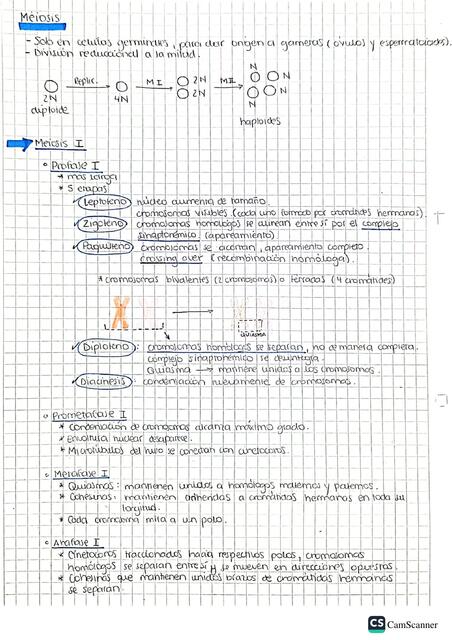 Meiosis
- Solo en células germinales, para dar origen a gametos (óvulos y espermatozoides).
- División reduccional a la mitad.
Replic. MI MII
2N 4N 2N 2N N N N N
diploide haploides
Meiosis I
Profase I
* más larga
* 5 etapas
Leptoteno: núcleo aumenta de tamaño.
cromosomas visibles (cada uno formado por cromátides hermanas).
Zigoteno: cromosomas homólogos se alinean entre sí por el complejo
sinaptonémico (apareamiento).
Paquiteno: cromosomas se acortan, apareamiento completo.
crossing over (recombinación homóloga).
* cromosomas bivalentes (2 cromosomas) o tétradas (4 cromátides)
quiasma
Diploteno: cromosomas homólogos se separan, no de manera completa.
complejo sinaptonémico se desintegra.
Quiasma → mantiene unidos a los cromosomas.
Diacinesis: condensación nuevamente de cromosomas.
Prometafase I
* Condensación de cromosomas alcanza máximo grado.
* Envoltura nuclear desaparece.
* Microtúbulos del huso se conectan con cinetocoros.
Metafase I
* Quiasmas: mantienen unidos a homólogos maternos y paternos.
* Cohesinas: mantienen adheridas a cromátides hermanas en toda su
longitud.
* Cada cromosoma mira a un polo.
Anafase I
* Cinetocoros traccionados hacia respectivos polos, cromosomas
homólogos se separan entre sí y se mueven en direcciones opuestas.
* Cohesinas que mantienen unidos brazos de cromátides hermanas
se separan.
CS CamScanner